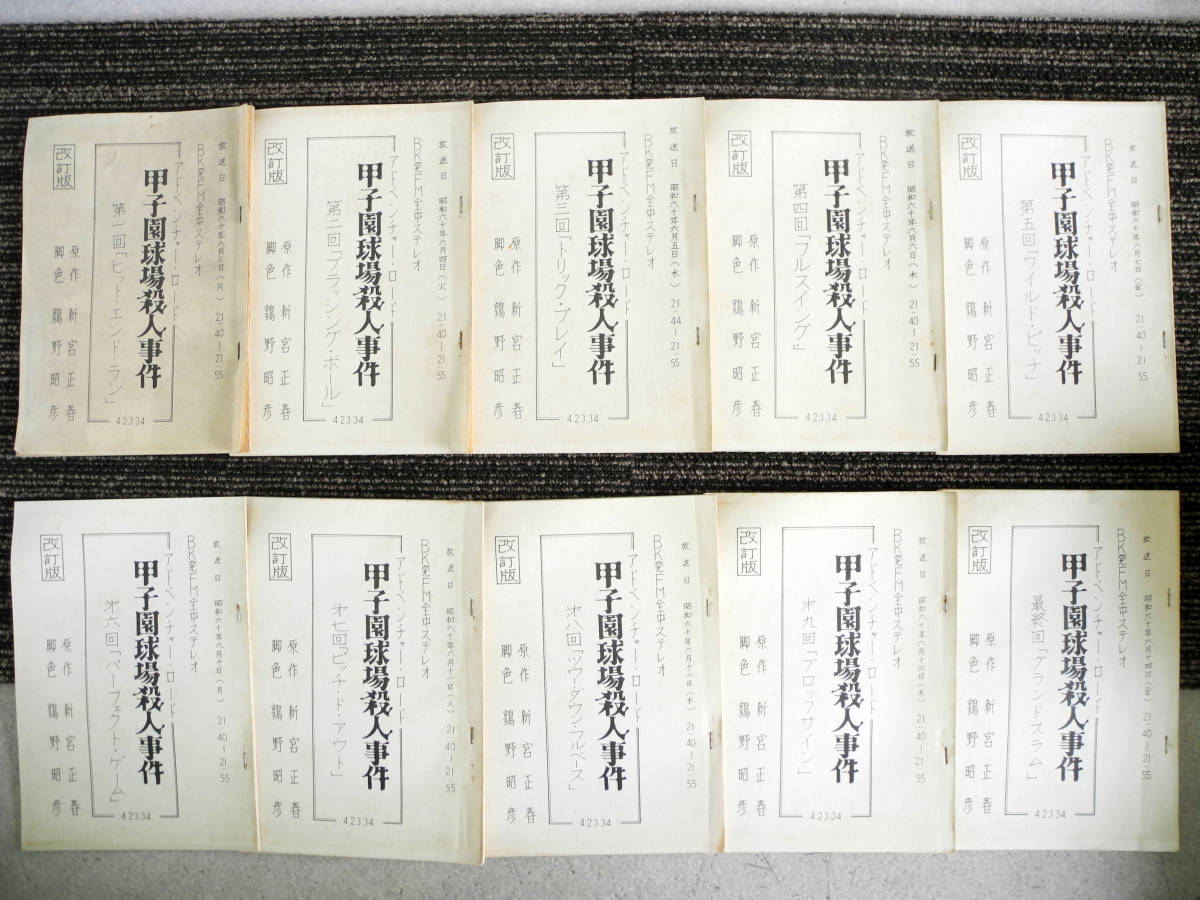 放送日 昭和六十年六月三日(月) 21:40~21:55
BK発FM全中ステレオ
アドベンチャー・ロード
甲子園球場殺人事件
第一回「ヒット・エンド・ラン」
42334
原作 新宮正春
脚色 鶉野昭彦
改訂版
放送日 昭和六十年六月四日(火) 21:40~21:55
BK発FM全中ステレオ
アドベンチャー・ロード
甲子園球場殺人事件
第二回「ブラッシング・ボール」
42334
原作 新宮正春
脚色 鶉野昭彦
改訂版
放送日 昭和六十年六月五日(水) 21:44~21:55
BK発FM全中ステレオ
アドベンチャー・ロード
甲子園球場殺人事件
第三回「トリック・プレイ」
42334
原作 新宮正春
脚色 鶉野昭彦
改訂版
放送日 昭和六十年六月六日(木) 21:40~21:55
BK発FM全中ステレオ
アドベンチャー・ロード
甲子園球場殺人事件
第四回「フルスイング」
42334
原作 新宮正春
脚色 鶉野昭彦
改訂版
放送日 昭和六十年六月七日(金) 21:40~21:55
BK発FM全中ステレオ
アドベンチャー・ロード
甲子園球場殺人事件
第五回「ワイルド・ピッチ」
42334
原作 新宮正春
脚色 鶉野昭彦
改訂版
放送日 昭和六十年六月十日(月) 21:40~21:55
BK発FM全中ステレオ
アドベンチャー・ロード
甲子園球場殺人事件
第六回「パーフェクト・ゲーム」
42334
原作 新宮正春
脚色 鶉野昭彦
改訂版
放送日 昭和六十年六月十一日(火) 21:40~21:55
BK発FM全中ステレオ
アドベンチャー・ロード
甲子園球場殺人事件
第七回「ピッチ・ド・アウト」
42334
原作 新宮正春
脚色 鶉野昭彦
改訂版
放送日 昭和六十年六月十二日(水) 21:40~21:55
BK発FM全中ステレオ
アドベンチャー・ロード
甲子園球場殺人事件
第八回「ツウ・ダウン・フルベース」
42334
原作 新宮正春
脚色 鶉野昭彦
改訂版
放送日 昭和六十年六月十三日(木) 21:40~21:55
BK発FM全中ステレオ
アドベンチャー・ロード
甲子園球場殺人事件
第九回「ブロックサイン」
42334
原作 新宮正春
脚色 鶉野昭彦
改訂版
放送日 昭和六十年六月十四日(金) 21:40~21:55
BK発FM全中ステレオ
アドベンチャー・ロード
甲子園球場殺人事件
最終回「グランドスラム」
42334
原作 新宮正春
脚色 鶉野昭彦
改訂版